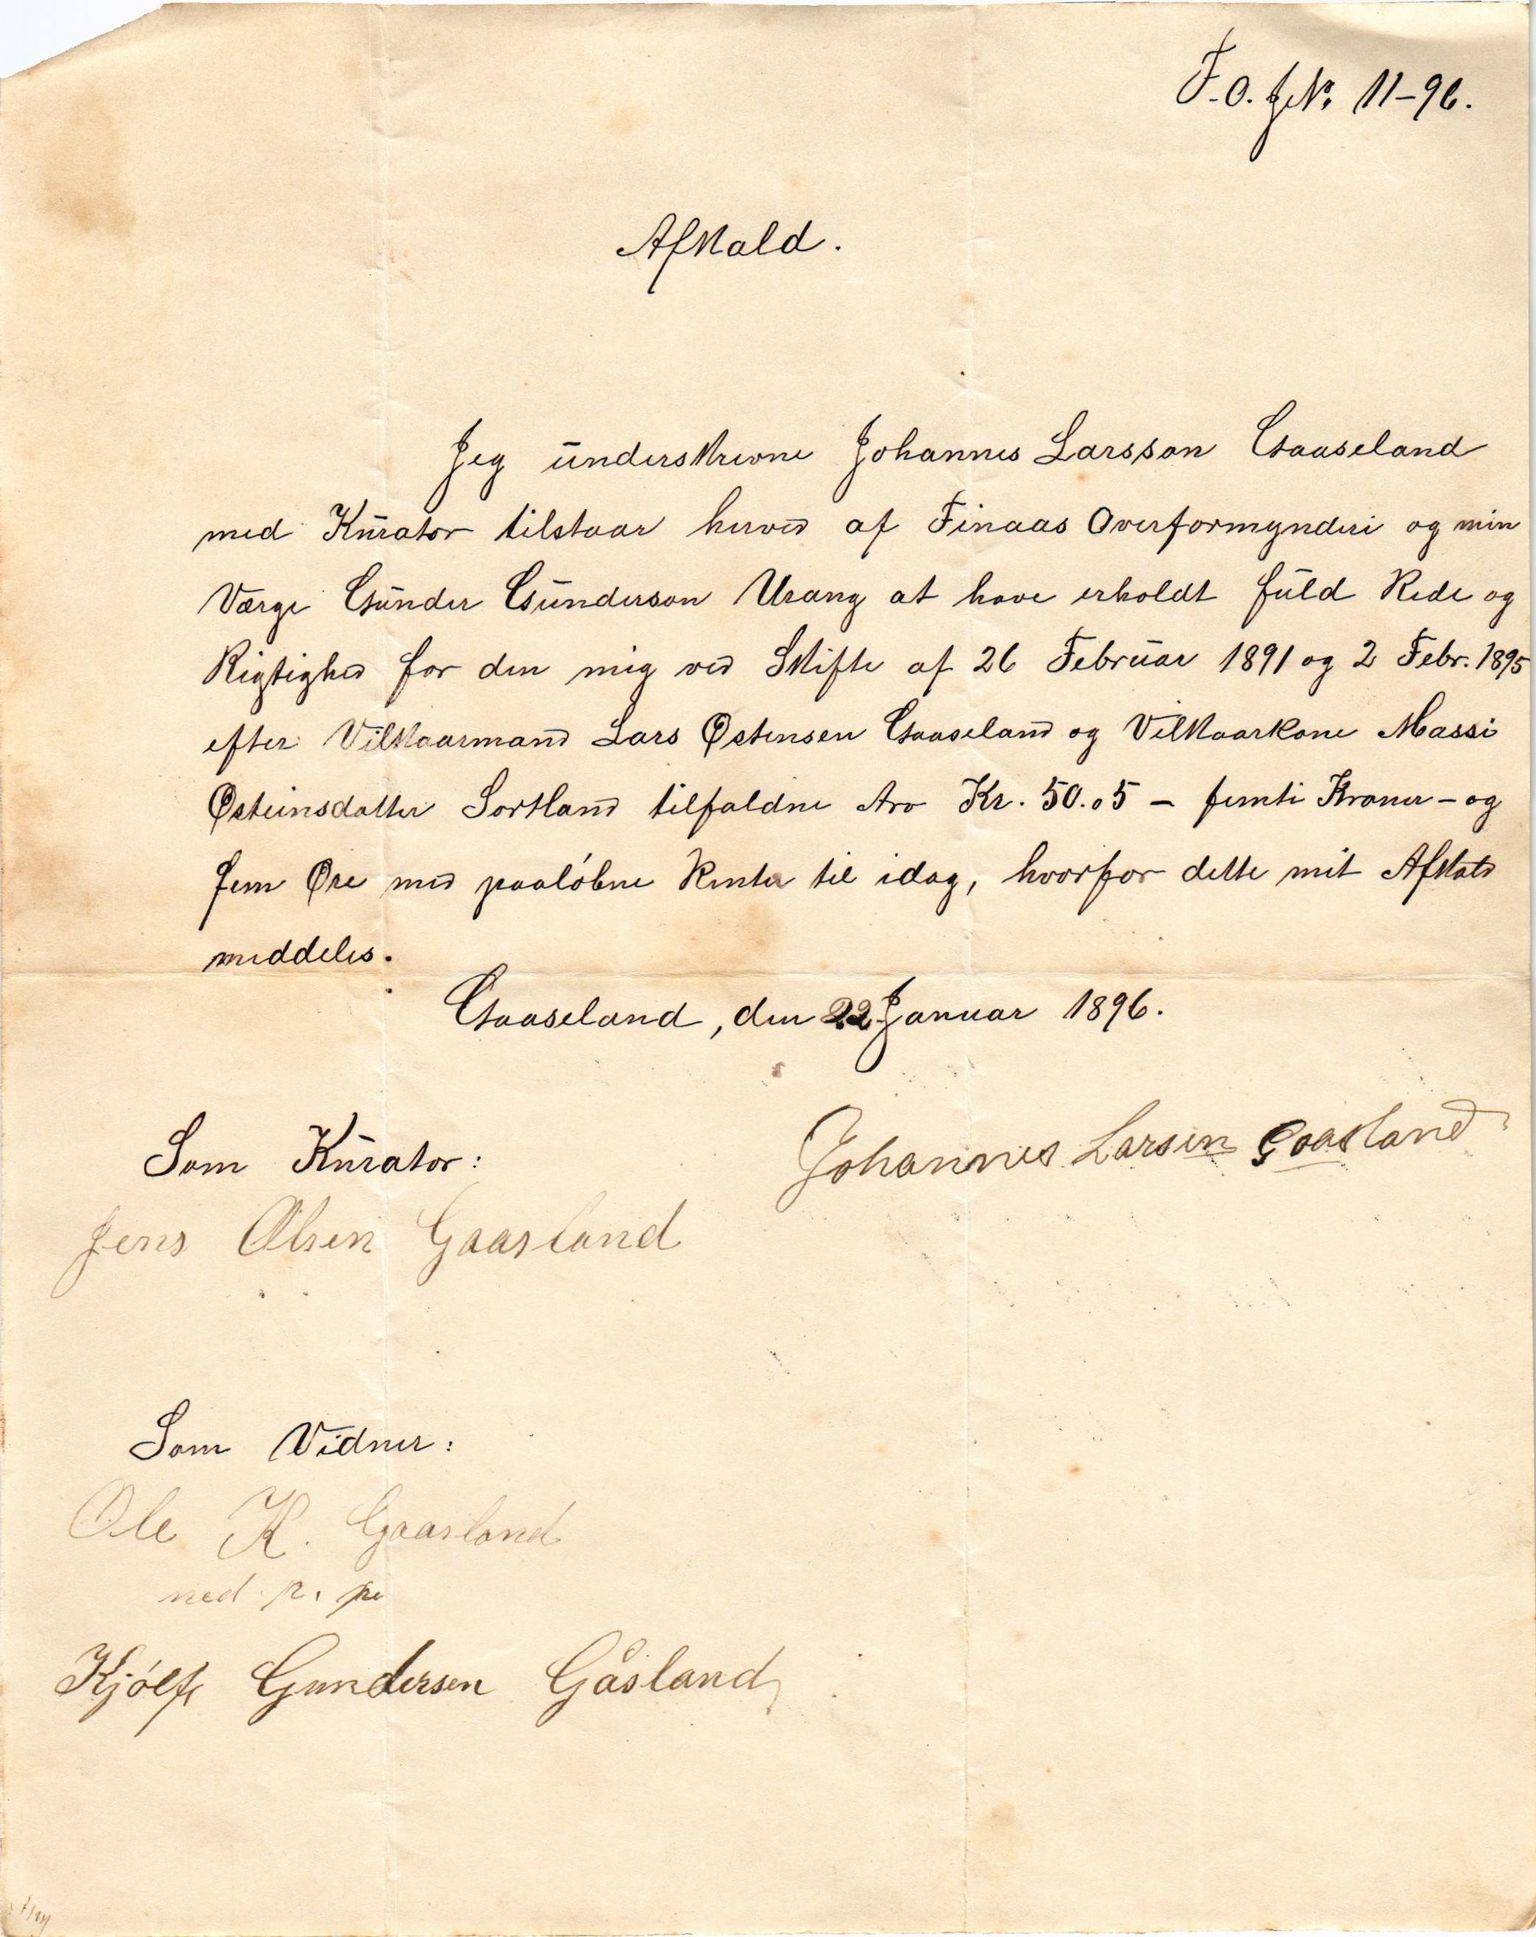 F.O. J.No. 11-96.
Afkald.
Jeg underskrevne Johannes Larsson Gaaseland
med Kurator tilstaar herved af Finaas Overformynderi og min
Værge Gunder Gunderson Urang at have erholdt fuld Rede og
Rigtighed for den mig ved Skifte af 26 Februar 1891 og 2 Febr. 1895
efter Vilkaarmand Lars Østensen Gaaseland og Vilkaarkone Massi
Østeinsdatter Sortland tilfaldne Arv Kr. 50.05 – femti Kroner – og
fem Øre med paaløbne Renter til idag, hvorfor dette mit Afkald
meddeles.
Gaaseland, den 22 Januar 1896.
Johannes Larsen Gaasland
Som Kurator:
Jens Olsen Gaasland
Som Vidner:
Ole K. Gaasland
med p. pe
Kjølf Gundersen Gåsland